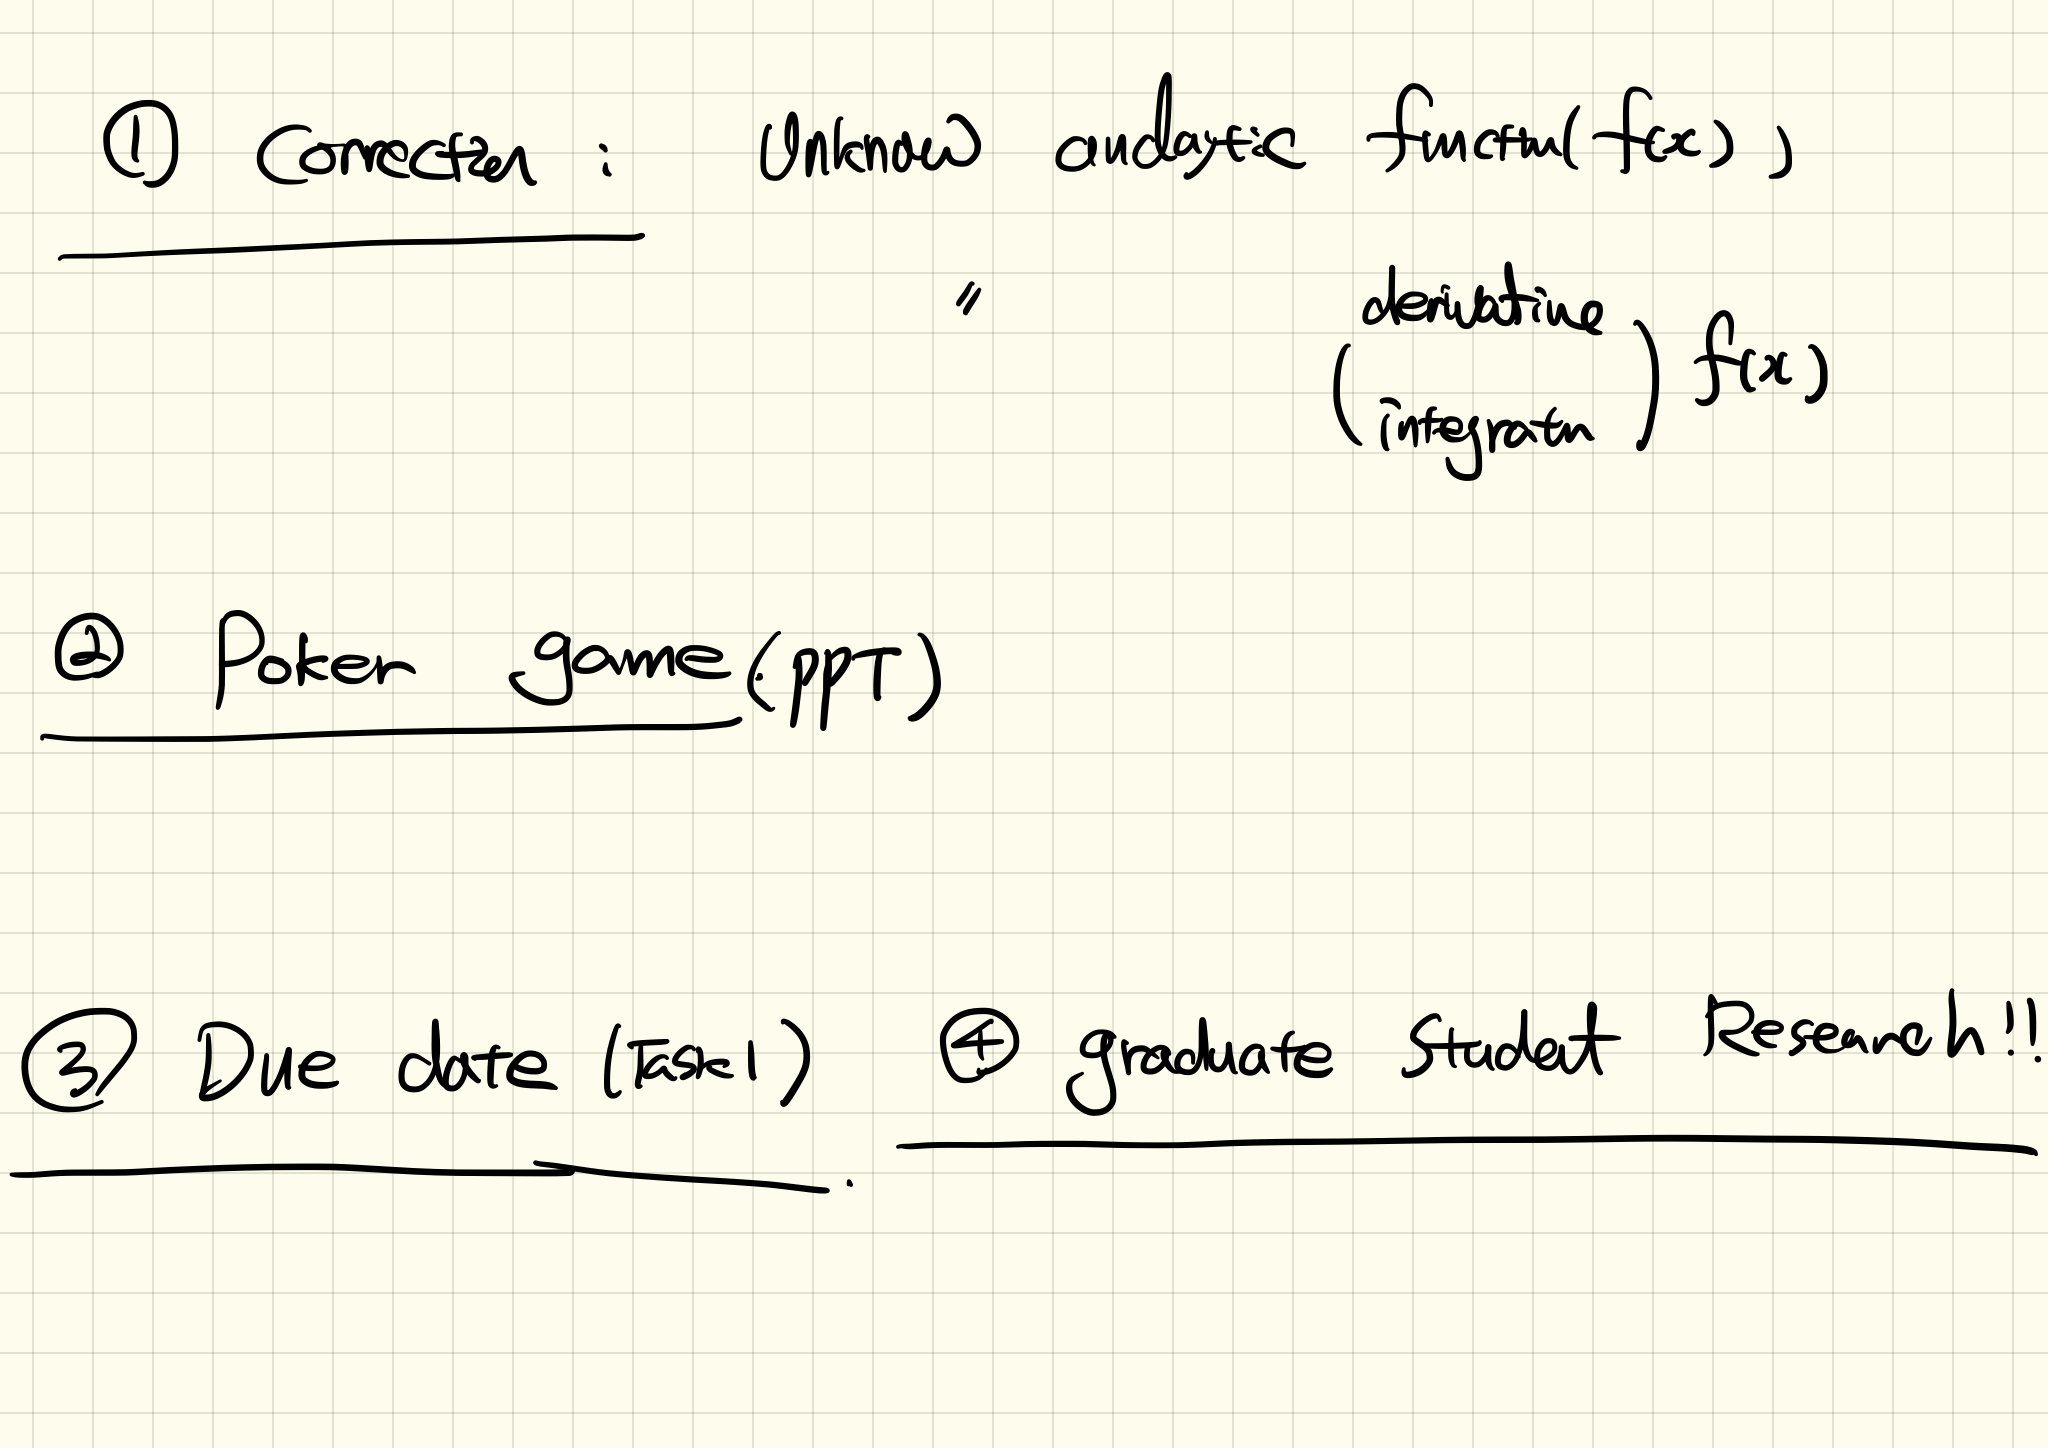 ① Correction : Unknow analytic function (f(x))
" (derivative integration) f(x)
② Poker game (PPT)
③ Due date (Task1) ④ graduate Student Research!!